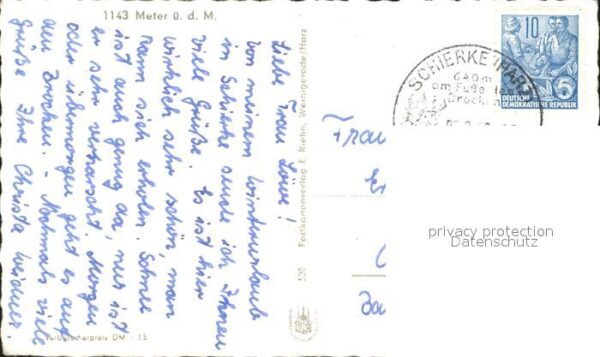 1143 Meter ü. d. M.
Liebe Frau
Von meinem Winterurlaub
in Schierke sende ich Ihnen
viele Grüße. Es ist hier
wirklich sehr schön, man
kann sich erholen. Schnee
ist auch genug da, nur ist
er sehr verharscht. Morgen
oder übermorgen geht es auf
den Brocken. – Nochmals viele
Grüße Ihre Christa
Verbraucherpreis DM -.15
Postkartenverlag E. Riehn, Wernigerode/Harz
Frau
10
5
DEUTSCHE
DEMOKRATISCHE REPUBLIK
SCHIERKE (HARZ)
640 m
am Fuße
Brocken
privacy protection
Datenschutz